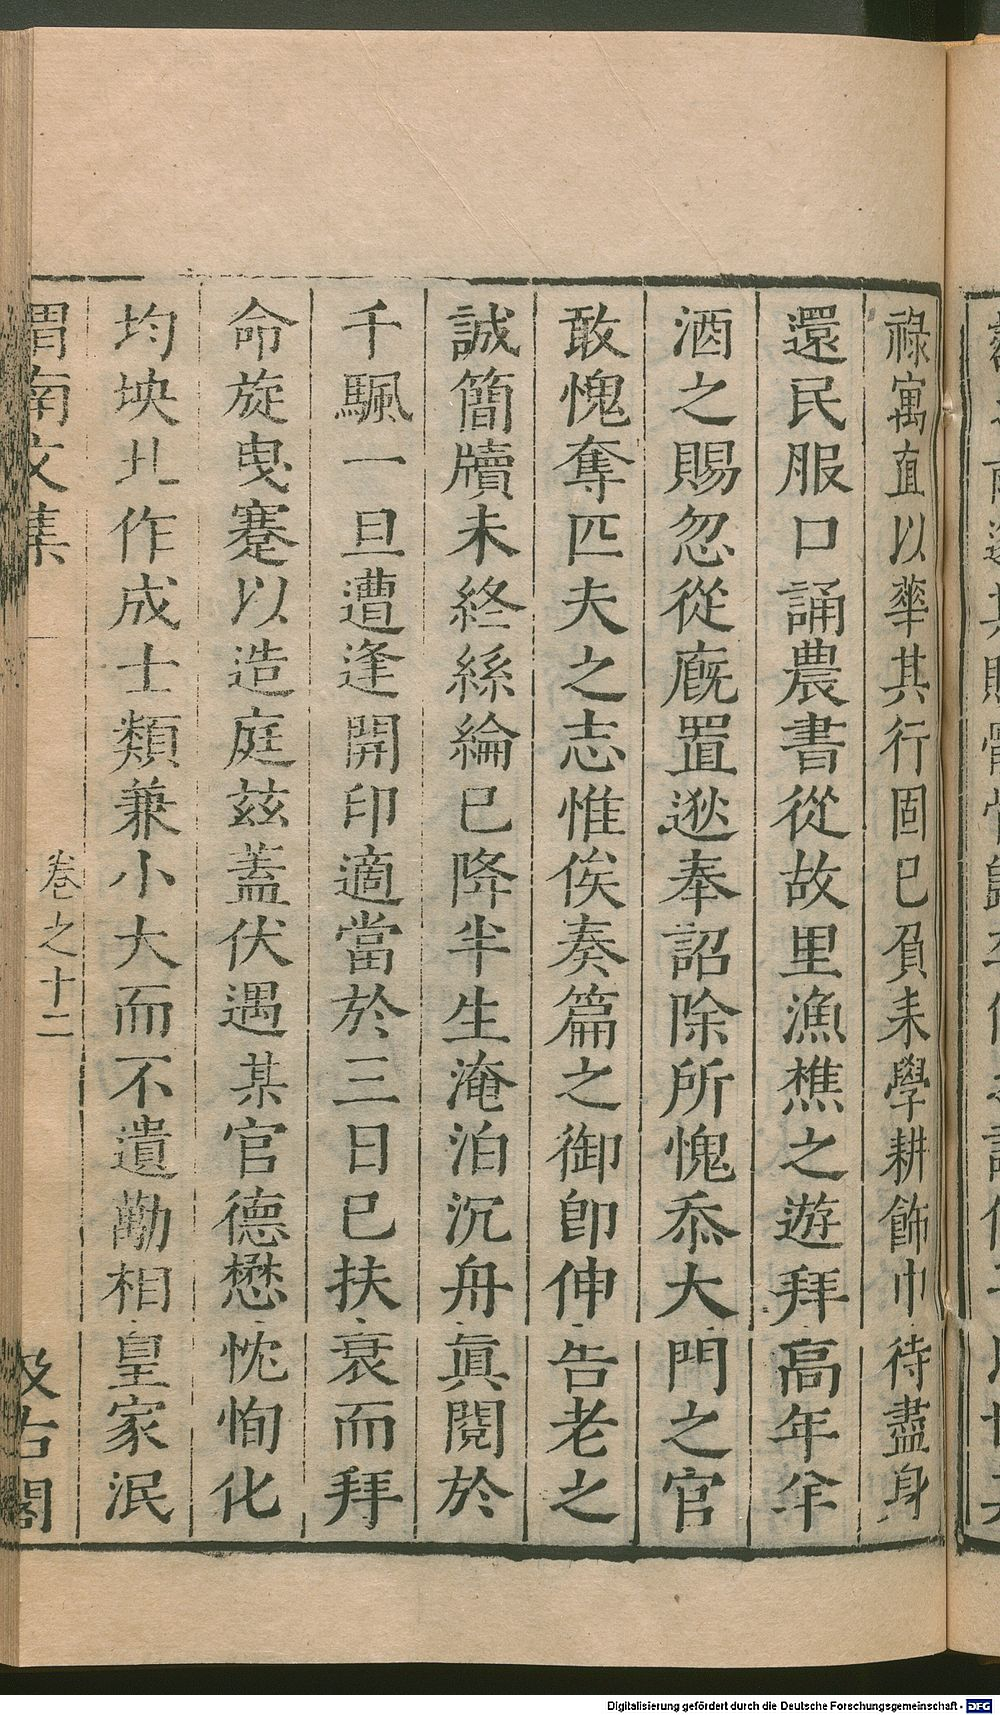 祿寓直以華其行固已負耒學耕飾巾待盡身
還民服口誦農書從故里漁樵之遊拜高年牟
酒之賜忽從廐置逖奉詔除所愧忝大門之官
敢愧奪匹夫之志惟俟奏篇之御卽伸告老之
誠簡牘未終絲綸已降半生淹泊沉舟眞閱於
千颿一旦遭逢開印適當於三日已扶衰而拜
命旋曳蹇以造庭茲蓋伏遇某官德懋忱恂化
均坱圠作成士類兼小大而不遺勱相皇家泯
渭南文集
卷之十二
汲古閣
Digitalisierung gefördert durch die Deutsche Forschungsgemeinschaft - DFG